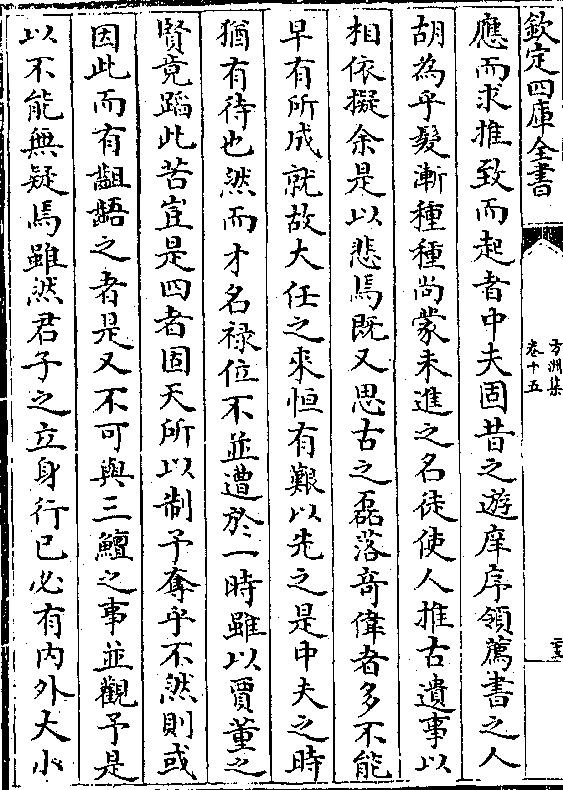 欽定四庫全書
方洲集
卷十五
應而求推致而起者中夫固昔之遊庠序領薦書之人
胡為乎髮漸種種尚蒙未進之名徒使人推古遺事以
相依擬余是以悲焉既又思古之磊落奇偉者多不能
早有所成就故大任之來恒有艱以先之是中夫之時
猶有待也然而才名禄位不並遭於一時雖以賈董之
賢竟蹈此苦豈是四者固天所以制予奪乎不然則或
因此而有齟齬之者是又不可與三鱣之事並觀予是
以不能無疑焉雖然君子之立身行已必有内外大小